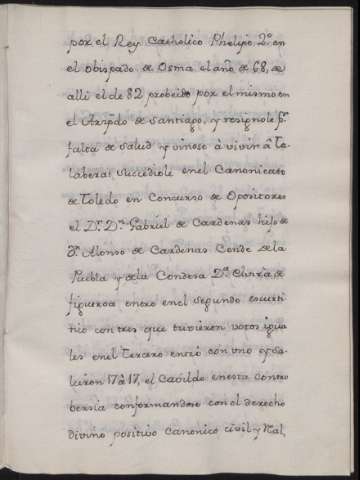 por el Rey Catholico Phelipo 2º en
el obispado de Osma el año de 68, de
alli el de 82 probeido por el mismo en
el Arzpdo de Santiago, y resignole pr
falta de salud y vinose â vivir â Ta
labera: Succediole en el Canonicato
de Toledo en Concurso de Opositores
el Dr. Dn. Gabriel de Cardenas hijo de
Dn. Alonso de Cardenas Conde de la
Puebla y de la Condesa Dª Elvira de
figueroa entro en el segundo escruti
nio con tres que tuvieron votos igua
les en el Tercero entró con uno
17 â 17, el Cavildo en esta contro
bersia conformandose con el derecho
Divino positivo canonico civil y Nal,